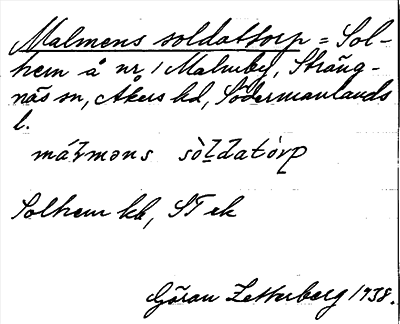 Malmens soldattorp = Sol-
hem å nr 1 Malmby, Sträng-
näs sn, Åkers hd, Södermanlands
l.
málməns sòldatòrp
Solhem kb, ST ek
Göran Zetterberg 1938.